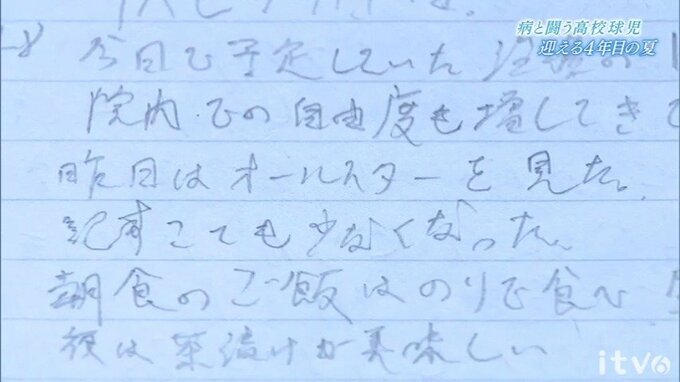 病と闘う高校球児
迎える4年目の夏
今日で予定していた治療の
院内での自由度も増してき
昨日はオールスターを見た。
記すことも少なくなった。
朝食のご飯はのりで食べ
夜は茶漬けが美味しい
itv6